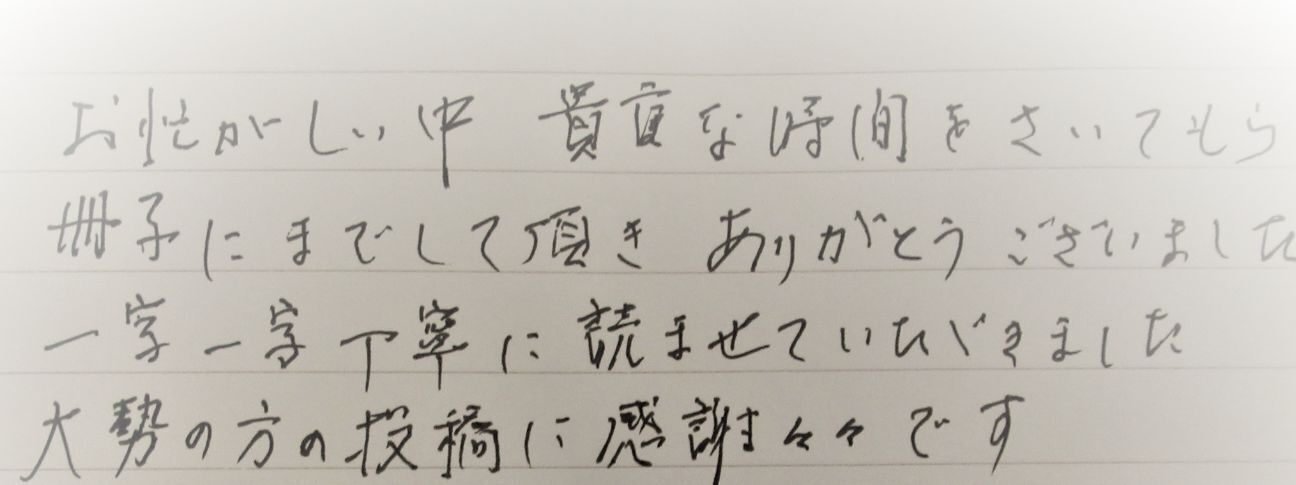 お忙がしい中 貴重な時間をさいてもら
冊子にまでして頂き ありがとうございました
一字一字丁寧に読ませていただきました
大勢の方の投稿に感謝々々です